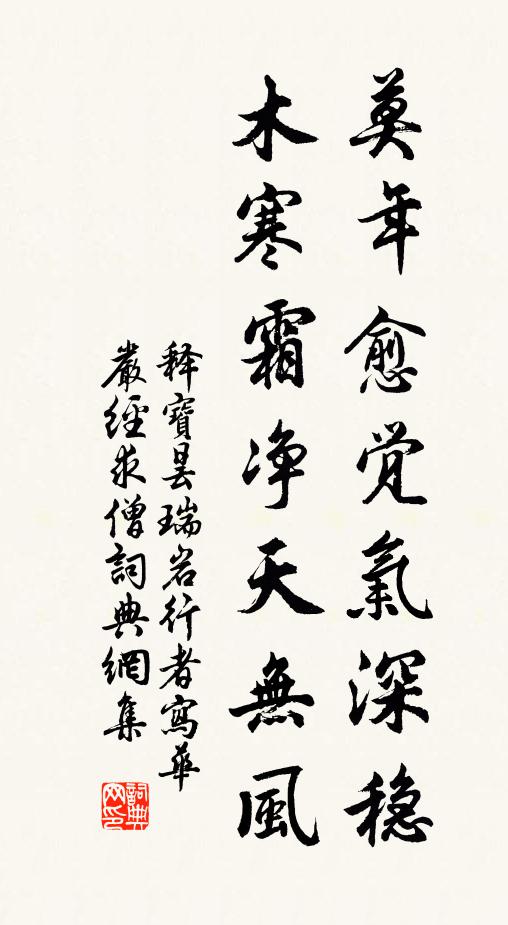 莫年愈觉氣深穏
木寒霜净天無風
释寶昙瑞岩行者寫華
嚴經求僧詞典網集
詞典网印